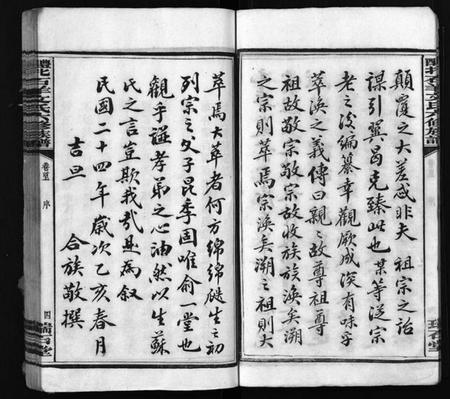 顛覆之大差惑非夫 祖宗之詒
謀引翼曷克臻此也 某等 宗
老之後編纂幸觀厥成深有味乎
萃渙之義傳曰親親故尊祖尊
祖故敬宗敬宗故收族族渙矣溯
之宗則萃焉宗渙矣溯之祖則大
萃焉大萃者何方綿綿瓞生之初
列宗之父子昆季固唯俞一堂也
觀乎譜孝弟之心油然以生蘇
氏之言豈欺我哉是為叙
民國二十四年歲次乙亥春月
吉旦 合族敬撰
族譜
序
四
石堂